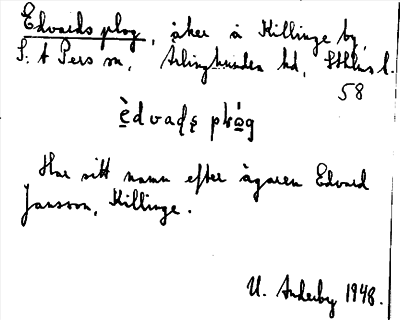 Edvards plog, åker å Killinge by,
S:t Pers sn, Ärlinghundra hd, Sthlms l.
58
è̱dvadş pɫò̱g
Har sitt namn efter ägaren Edvard
Jansson, Killinge.
U. Anderby 1948.